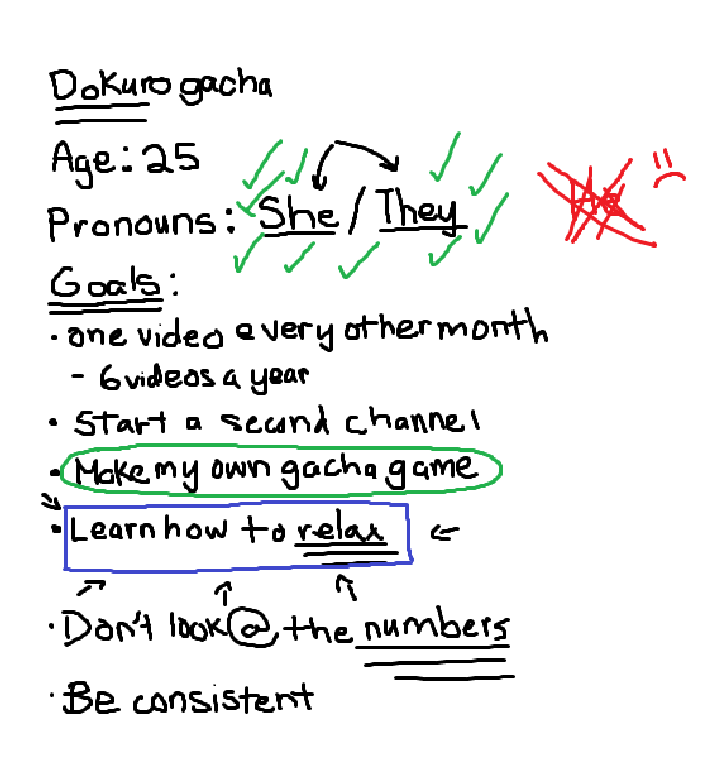 Dokuro gacha
Age: 25
Pronouns: She / They
Goals:
• one video every other month
- 6 videos a year
• Start a second channel
• Make my own gacha game
• Learn how to relax
• Don't look @ the numbers
• Be consistent